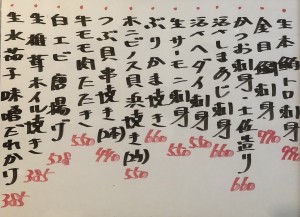 生本鮪トロ刺身 990
金目鯛刺身 990
かつお刺身 土佐造り 660
活〆しまあじ刺身 660
活〆ヘダイ刺身 550
生サーモン刺身 550
ぶりかま焼き 660
ホンビノス貝浜焼き(2ヶ) 550
つぶ貝串焼き(1本) 440
牛モモ肉たたき 550
白エビ唐揚げ 528
生椎茸ホイル焼き 385
生水茄子 味噌だれかけ 385